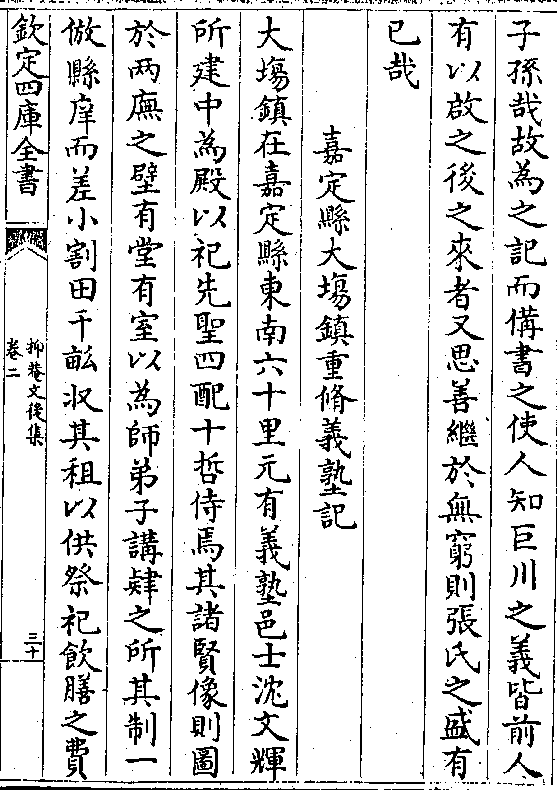 子孫哉故為之記而備書之使人知巨川之義皆前人
有以啟之後之來者又思善繼於無窮則張氏之盛有
已哉
嘉定縣大塲鎮重脩義塾記
大塲鎮在嘉定縣東南六十里元有義塾邑士沈文輝
所建中為殿以祀先聖四配十哲侍焉其諸賢像則圖
於两廡之壁有堂有室以為師弟子講肄之所其制一
倣縣庠而差小割田千畝収其租以供祭祀飲膳之費
欽定四庫全書
抑菴文後集
卷二
三十